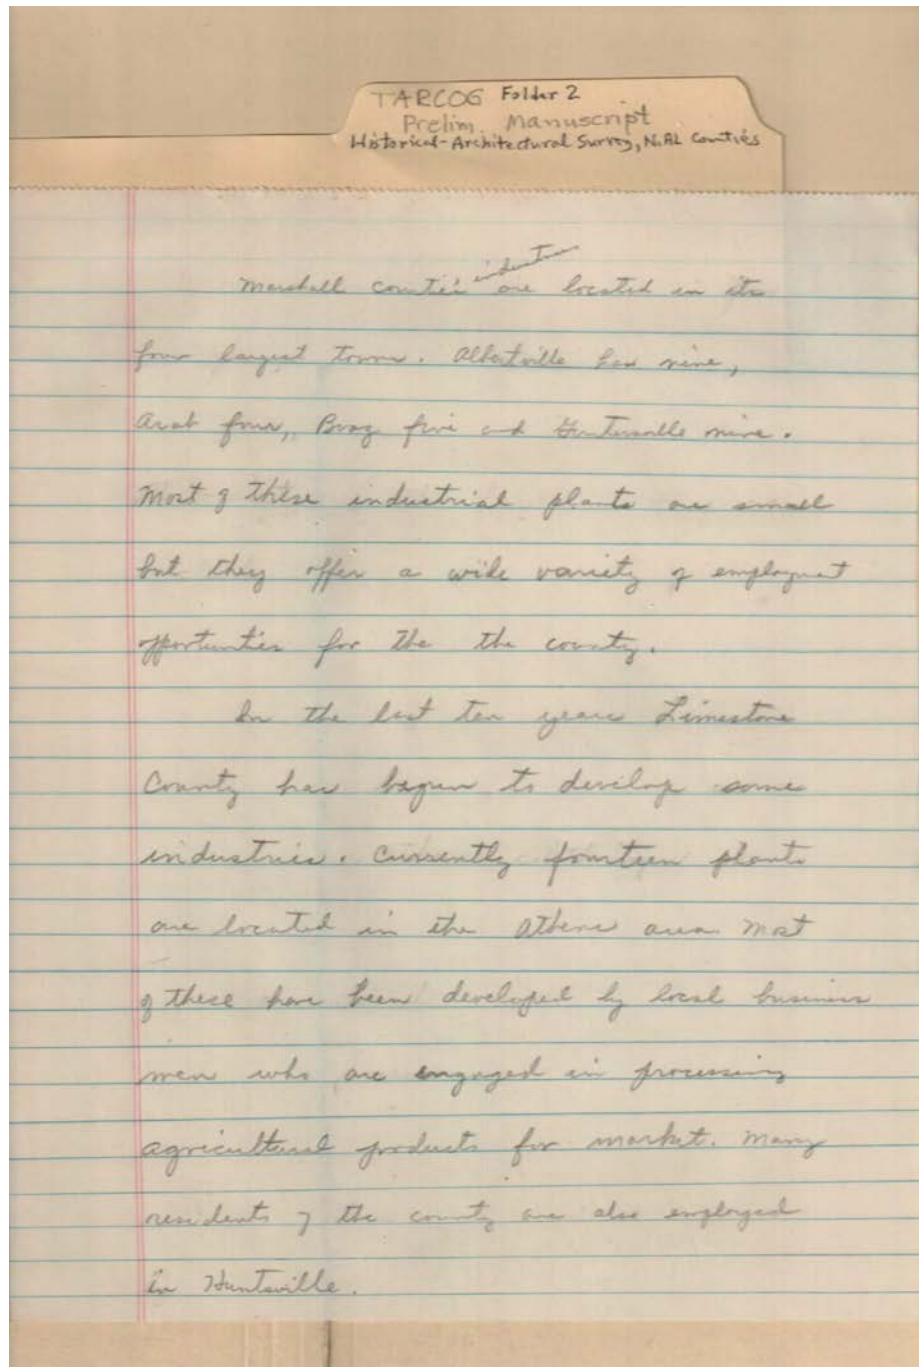 TARCOG Folder 2
Prelim. Manuscript
Historical-Architectural Survey, N. AL Counties
industries
Marshall countie's are located in its
four largest towns. Albertville has nine,
Arab four, Boaz five and Guntersville nine.
Most of these industrial plants are small
but they offer a wide variety of employment
opportunities for the the county.
In the last ten years Limestone
County has begun to develop some
industries. Currently fourteen plants
are located in the Athens area. Most
of these have been developed by local business
men who are engaged in processing
agricultural products for market. Many
residents of the county are also employed
in Huntsville.